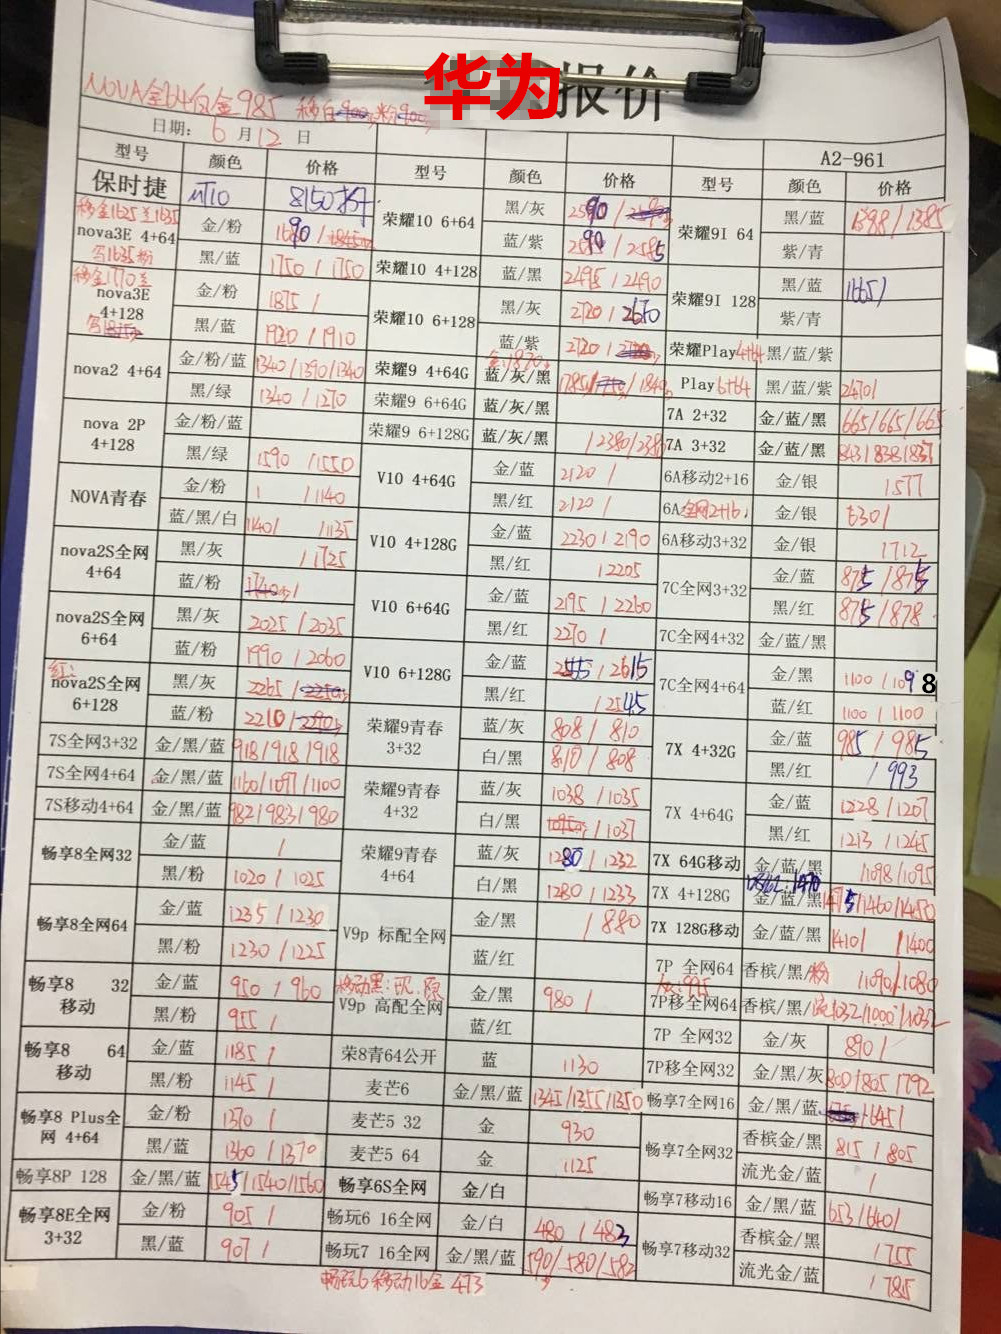 华为报价
NOVA金64白金985 移白
日期： 6 月 12 日
A2-961
型号 颜色 价格 型号 颜色 价格 型号 颜色 价格
保时捷 MT10 8150
移金1625
nova3E 4+64 金/粉
写1635粉 黑/蓝 1750 / 1750
移金1770
nova3E 4+128 金/粉 1875 /
黑/蓝 1920 / 1910
nova2 4+64 金/粉/蓝 1340/1390/1340
黑/绿 1340 / 1270
nova 2P 4+128 金/粉/蓝
黑/绿 1590 /1550
NOVA青春 金/粉 / /1140
蓝/黑/白 1140/ /1135
nova2S全网 4+64 黑/灰 / 1725
蓝/粉
nova2S全网 6+64 黑/灰 2025 / 2035
蓝/粉 1990 / 2060
红：
nova2S全网 6+128 黑/灰 2265 /
蓝/粉 2210 /
7S全网3+32 金/黑/蓝 918/918/918
7S全网4+64 金/黑/蓝 1160/1097/1100
7S移动4+64 金/黑/蓝 982/983/980
畅享8全网32 金/蓝 /
黑/粉 1020 / 1025
畅享8全网64 金/蓝 1235 / 1230
黑/粉 1230 / 1225
畅享8 32 移动 金/蓝 950 / 960
黑/粉 955 /
畅享8 64 移动 金/蓝 1185 /
黑/粉 1145 /
畅享8 Plus全网 4+64 金/粉 1370 /
黑/蓝 1360 / 1370
畅享8P 128 金/黑/蓝 1545/1540/1560
畅享8E全网 3+32 金/粉 905 /
黑/蓝 907 /
荣耀10 6+64 黑/灰 2590 /
蓝/紫 2590 / 2585
荣耀10 4+128 蓝/黑 2495 / 2490
荣耀10 6+128 黑/灰 2720 / 2670
蓝/紫 2720 /
荣耀9 4+64G 蓝/灰/黑
荣耀9 6+64G 蓝/灰/黑
荣耀9 6+128G 蓝/灰/黑 / 2380 /
V10 4+64G 金/蓝 2120 /
黑/红 2120 /
V10 4+128G 金/蓝 2230 / 2190
黑/红 / 2205
V10 6+64G 金/蓝 2195 / 2260
黑/红 2270 /
V10 6+128G 金/蓝 / 2615
黑/红 / 2545
荣耀9青春 3+32 蓝/灰 808 / 810
白/黑 810 / 808
荣耀9青春 4+32 蓝/灰 1038 / 1035
白/黑 / 1037
荣耀9青春 4+64 蓝/灰 1280 / 1232
白/黑 1280 / 1233
V9p 标配全网 金/黑 / 880
蓝/红
移动黑：现.限
V9p 高配全网 金/黑 980 /
蓝/红
荣8青64公开 蓝 1130
麦芒6 金/黑/蓝 1345/1355/1350
麦芒5 32 金 930
麦芒5 64 金 1125
畅享6S全网 金/白
畅玩6 16全网 金/白 480 / 483
畅玩7 16全网 金/黑/蓝 590/580/582
荣耀9I 64 黑/蓝 1398 / 1385
紫/青
荣耀9I 128 黑/蓝 1665/
紫/青
荣耀Play4+64 黑/蓝/紫
Play6+64 黑/蓝/紫 2470/
7A 2+32 金/蓝/黑 665/665/665
7A 3+32 金/蓝/黑 843/838/837
6A移动2+16 金/银 / 577
6A全网2+16 金/银 630 /
6A移动3+32 金/银 / 712
7C全网3+32 金/蓝 875 / 875
黑/红 875 / 878
7C全网4+32 金/蓝/黑
7C全网4+64 金/黑 1100 / 1098
蓝/红 1100 / 1100
7X 4+32G 金/蓝 985 / 985
黑/红 / 993
7X 4+64G 金/蓝 1228 / 1207
黑/红 1213 / 1245
7X 64G移动 金/蓝/黑 /1098/1095
7X 4+128G 金/蓝/黑 1475/1460/1450
7X 128G移动 金/蓝/黑 1410/ /1400
7P 全网64 香槟/黑/粉 /1090/1080
7P移全网64 香槟/黑/ 1032/1000/1032
7P 全网32 金/灰 890 /
7P移全网32 金/黑/灰 800/805/792
畅享7全网16 金/黑/蓝 /645/
畅享7全网32 香槟金/黑 815 / 805
流光金/蓝 /
畅享7移动16 金/黑/蓝 653/640/
畅享7移动32 香槟金/黑 / 755
流光金/蓝 / 785
畅玩6移动16金 473